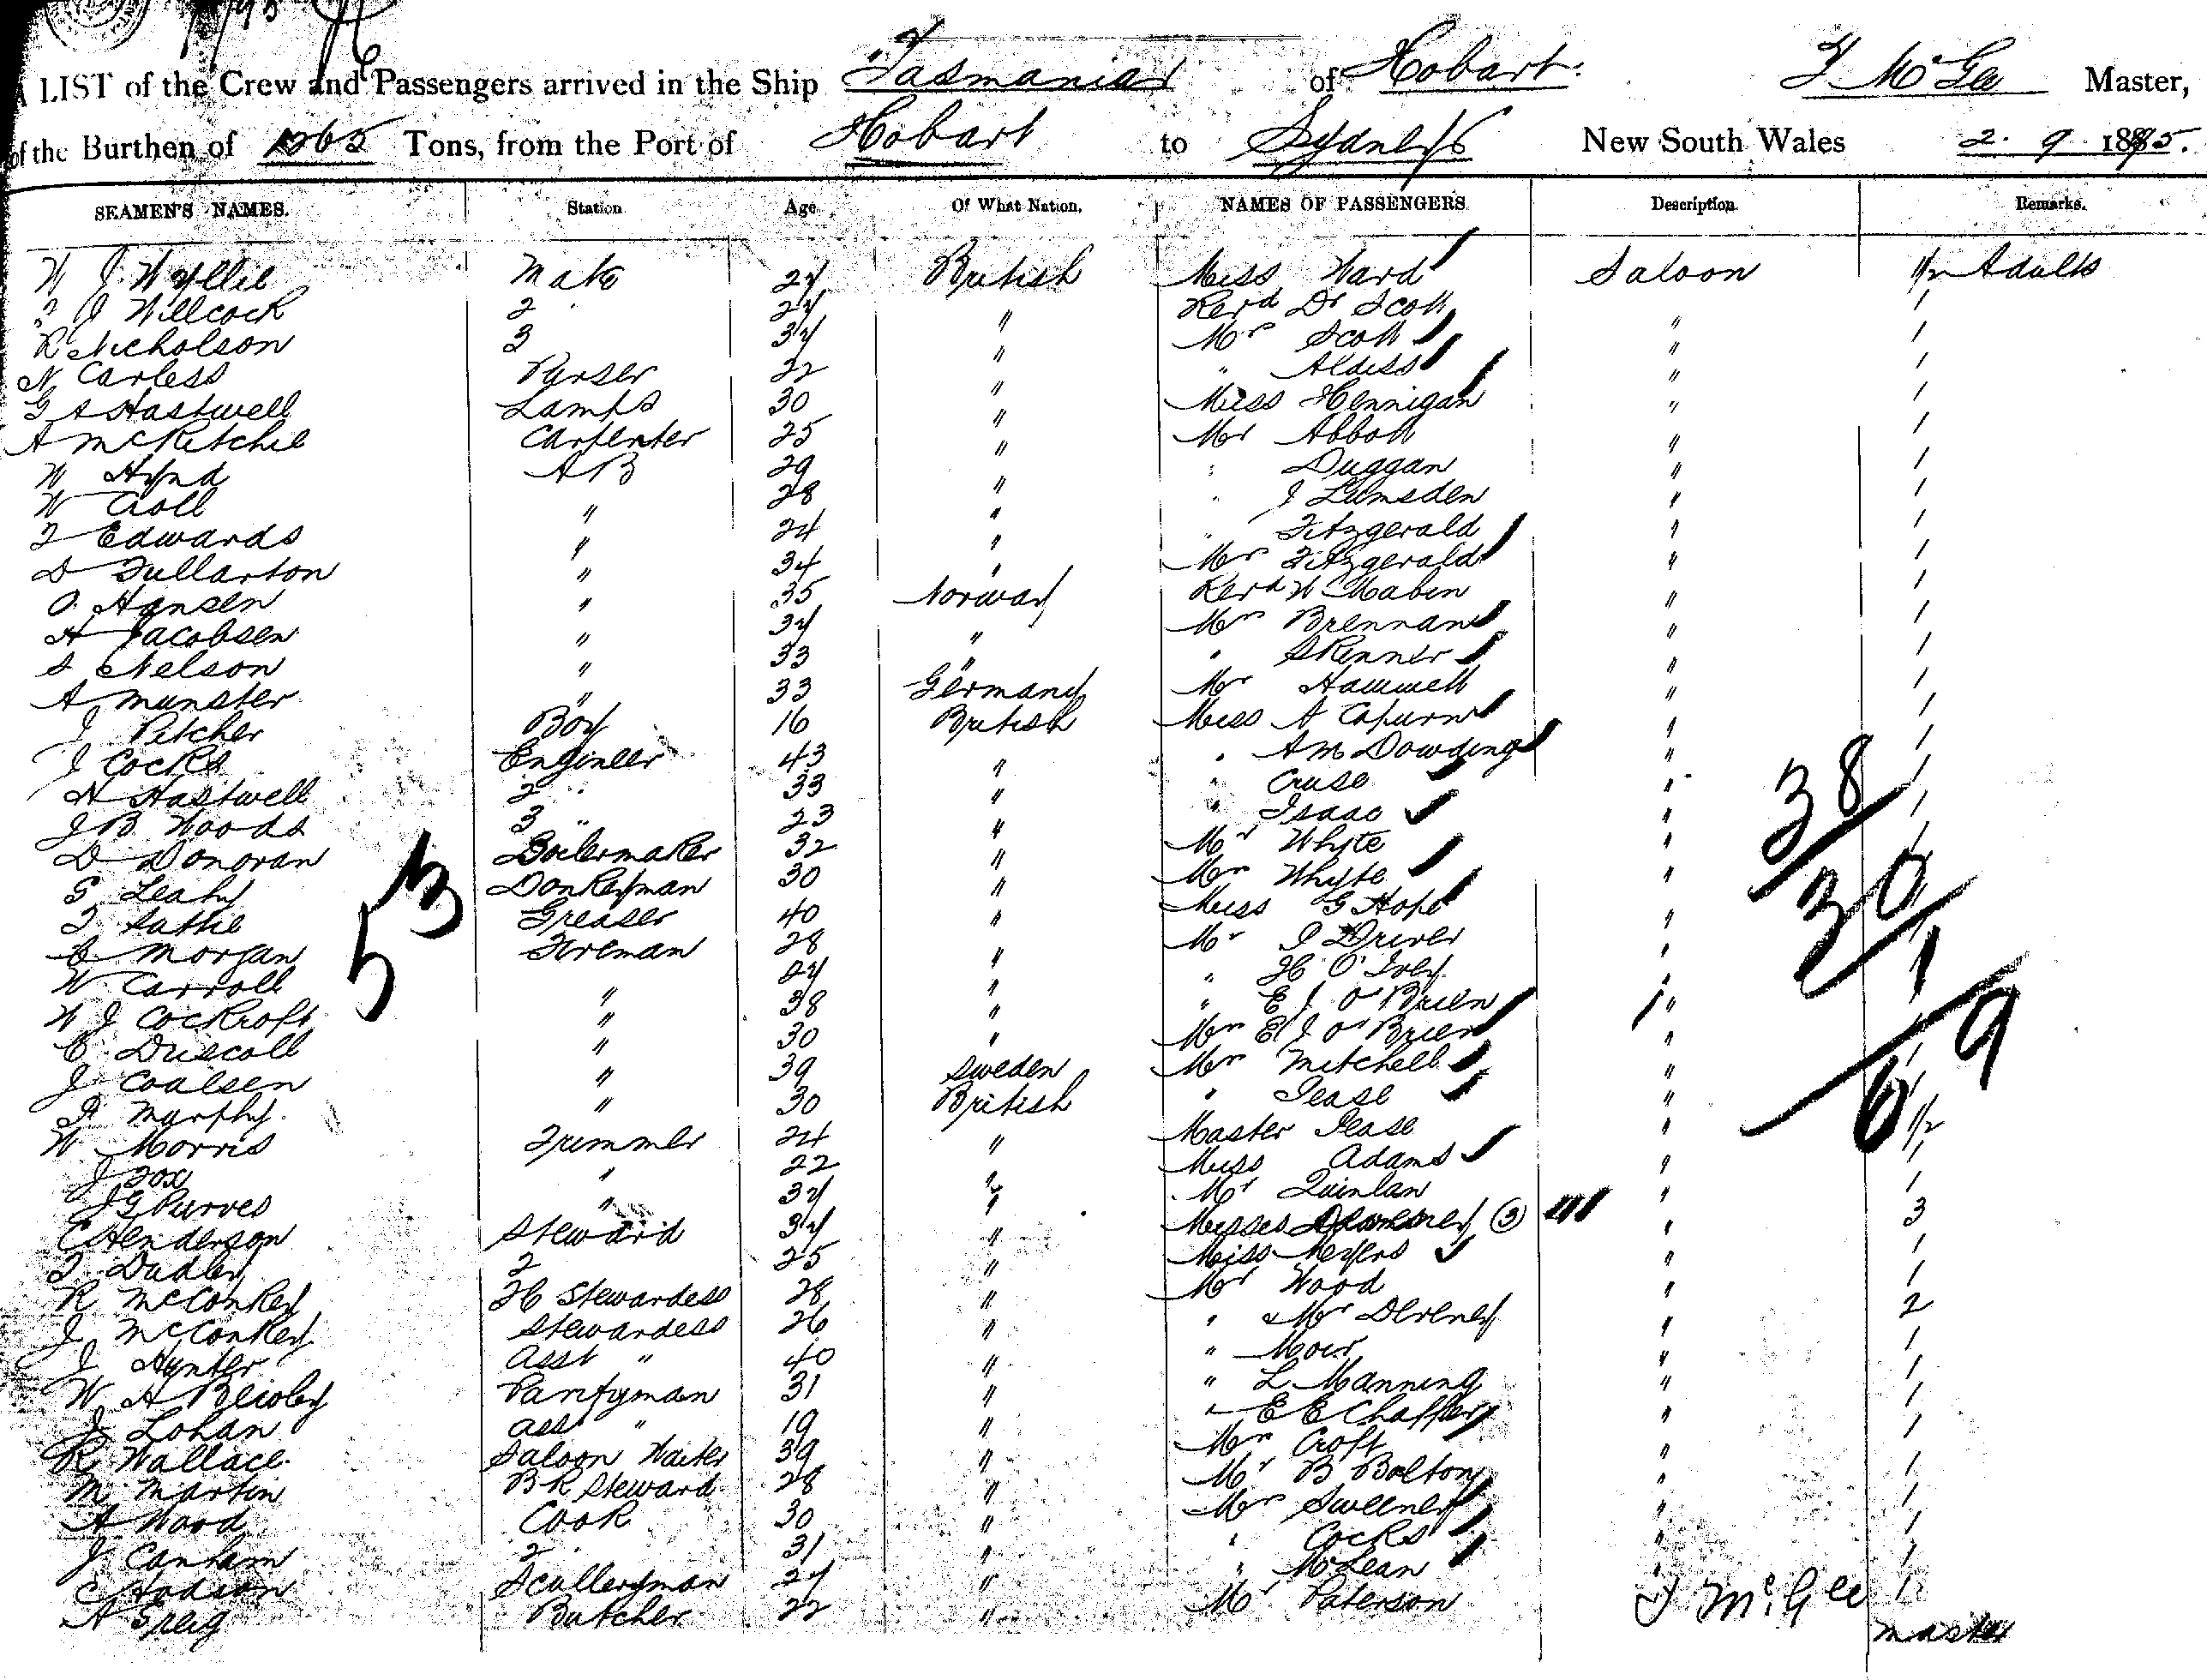 A LIST of the Crew and Passengers arrived in the Ship "Tasmania" of Hobart. T McGee Master,
of the Burthen of 1265 Tons, from the Port of Hobart to Sydney New South Wales 2. 9 1895.
SEAMEN'S NAMES. Station Age Of What Nation. NAMES OF PASSENGERS Description. Remarks.
W J Wyllie Mate 27 British Miss Ward Saloon Adults
T J Willcock 2 " 27 " Revd Dr Scott " 1
R Nicholson 3 37 " Mrs Scott " 1
N Carless Purser 22 " " Aldiss " 1
G A Hastwell Lamps 30 " Miss Hennigan " 1
A McRitchie Carpenter 25 " Mr Abbott " 1
W Hynd AB 29 " " Duggan " 1
W Croll " 28 " " J Lumsden " 1
T Edwards " 24 " " Fitzgerald " 1
D Fullarton " 34 " Mrs Fitzgerald " 1
O. Hansen " 35 Norway Revd W Mabin " 1
H Jacobsen " 37 " Mrs Brennan " 1
S Nelson " 33 " " Skinner " 1
A Munster " 33 Germany Mr Hammett " 1
J Pitcher Boy 16 British Miss A Capurn " 1
J Cocks Engineer 43 " " A M Dowding " 1
H Hastwell 2 " 33 " " Cruse " 1
J B Woods 3 " 23 " " Isaac " 1
D Donovan Boilermaker 32 " Mr Whyte " 1
S Leahy Donkeyman 30 " Mrs Whyte " 1
T Lathie Greaser 40 " Miss G Hope " 1
C Morgan Fireman 28 " Mr P Driver " 1
W Carroll 27 " " H O' Ivey "
W J Cockroft " 38 " " E J O'Brien "
C Driscoll " 30 " Mrs E J O'Brien "
J Coalsen " 39 Sweden Mrs Mitchell " 1
P Murphy " 30 British " Pease " 1
W Morris Trimmer 24 " Master Pease " 1/2
J Fox " 22 " Miss Adams " 1
J G Purves " 37 " Mr Quinlan " 1
C Henderson Steward 37 " Misses (3) " 3
T Dudley 2 25 " Miss Meyers " 1
R McConkey FC Stewardess 28 " Mr Wood " 1
J McConkey Stewardess 26 " " & Mrs Deveney " 2
J Hunter Asst " 40 " " Moir " 1
W H Bewley Pantryman 31 " " L Manning " 1
J Lohan asst " 19 " " E E Chaffery " 1
R Wallace Saloon Waiter 39 " Mrs Croft " 1
M Martin B R Steward 28 " Mr B Bolton " 1
A Wood Cook 30 " Mrs Sweeney " 1
J Canham 2 " 31 " " Cocks " 1
C Hodson Sculleryman 27 " " McLean " 1
A Greig Butcher 22 " Mr Paterson " 1
53
38
30
1
69
T McGee
Master